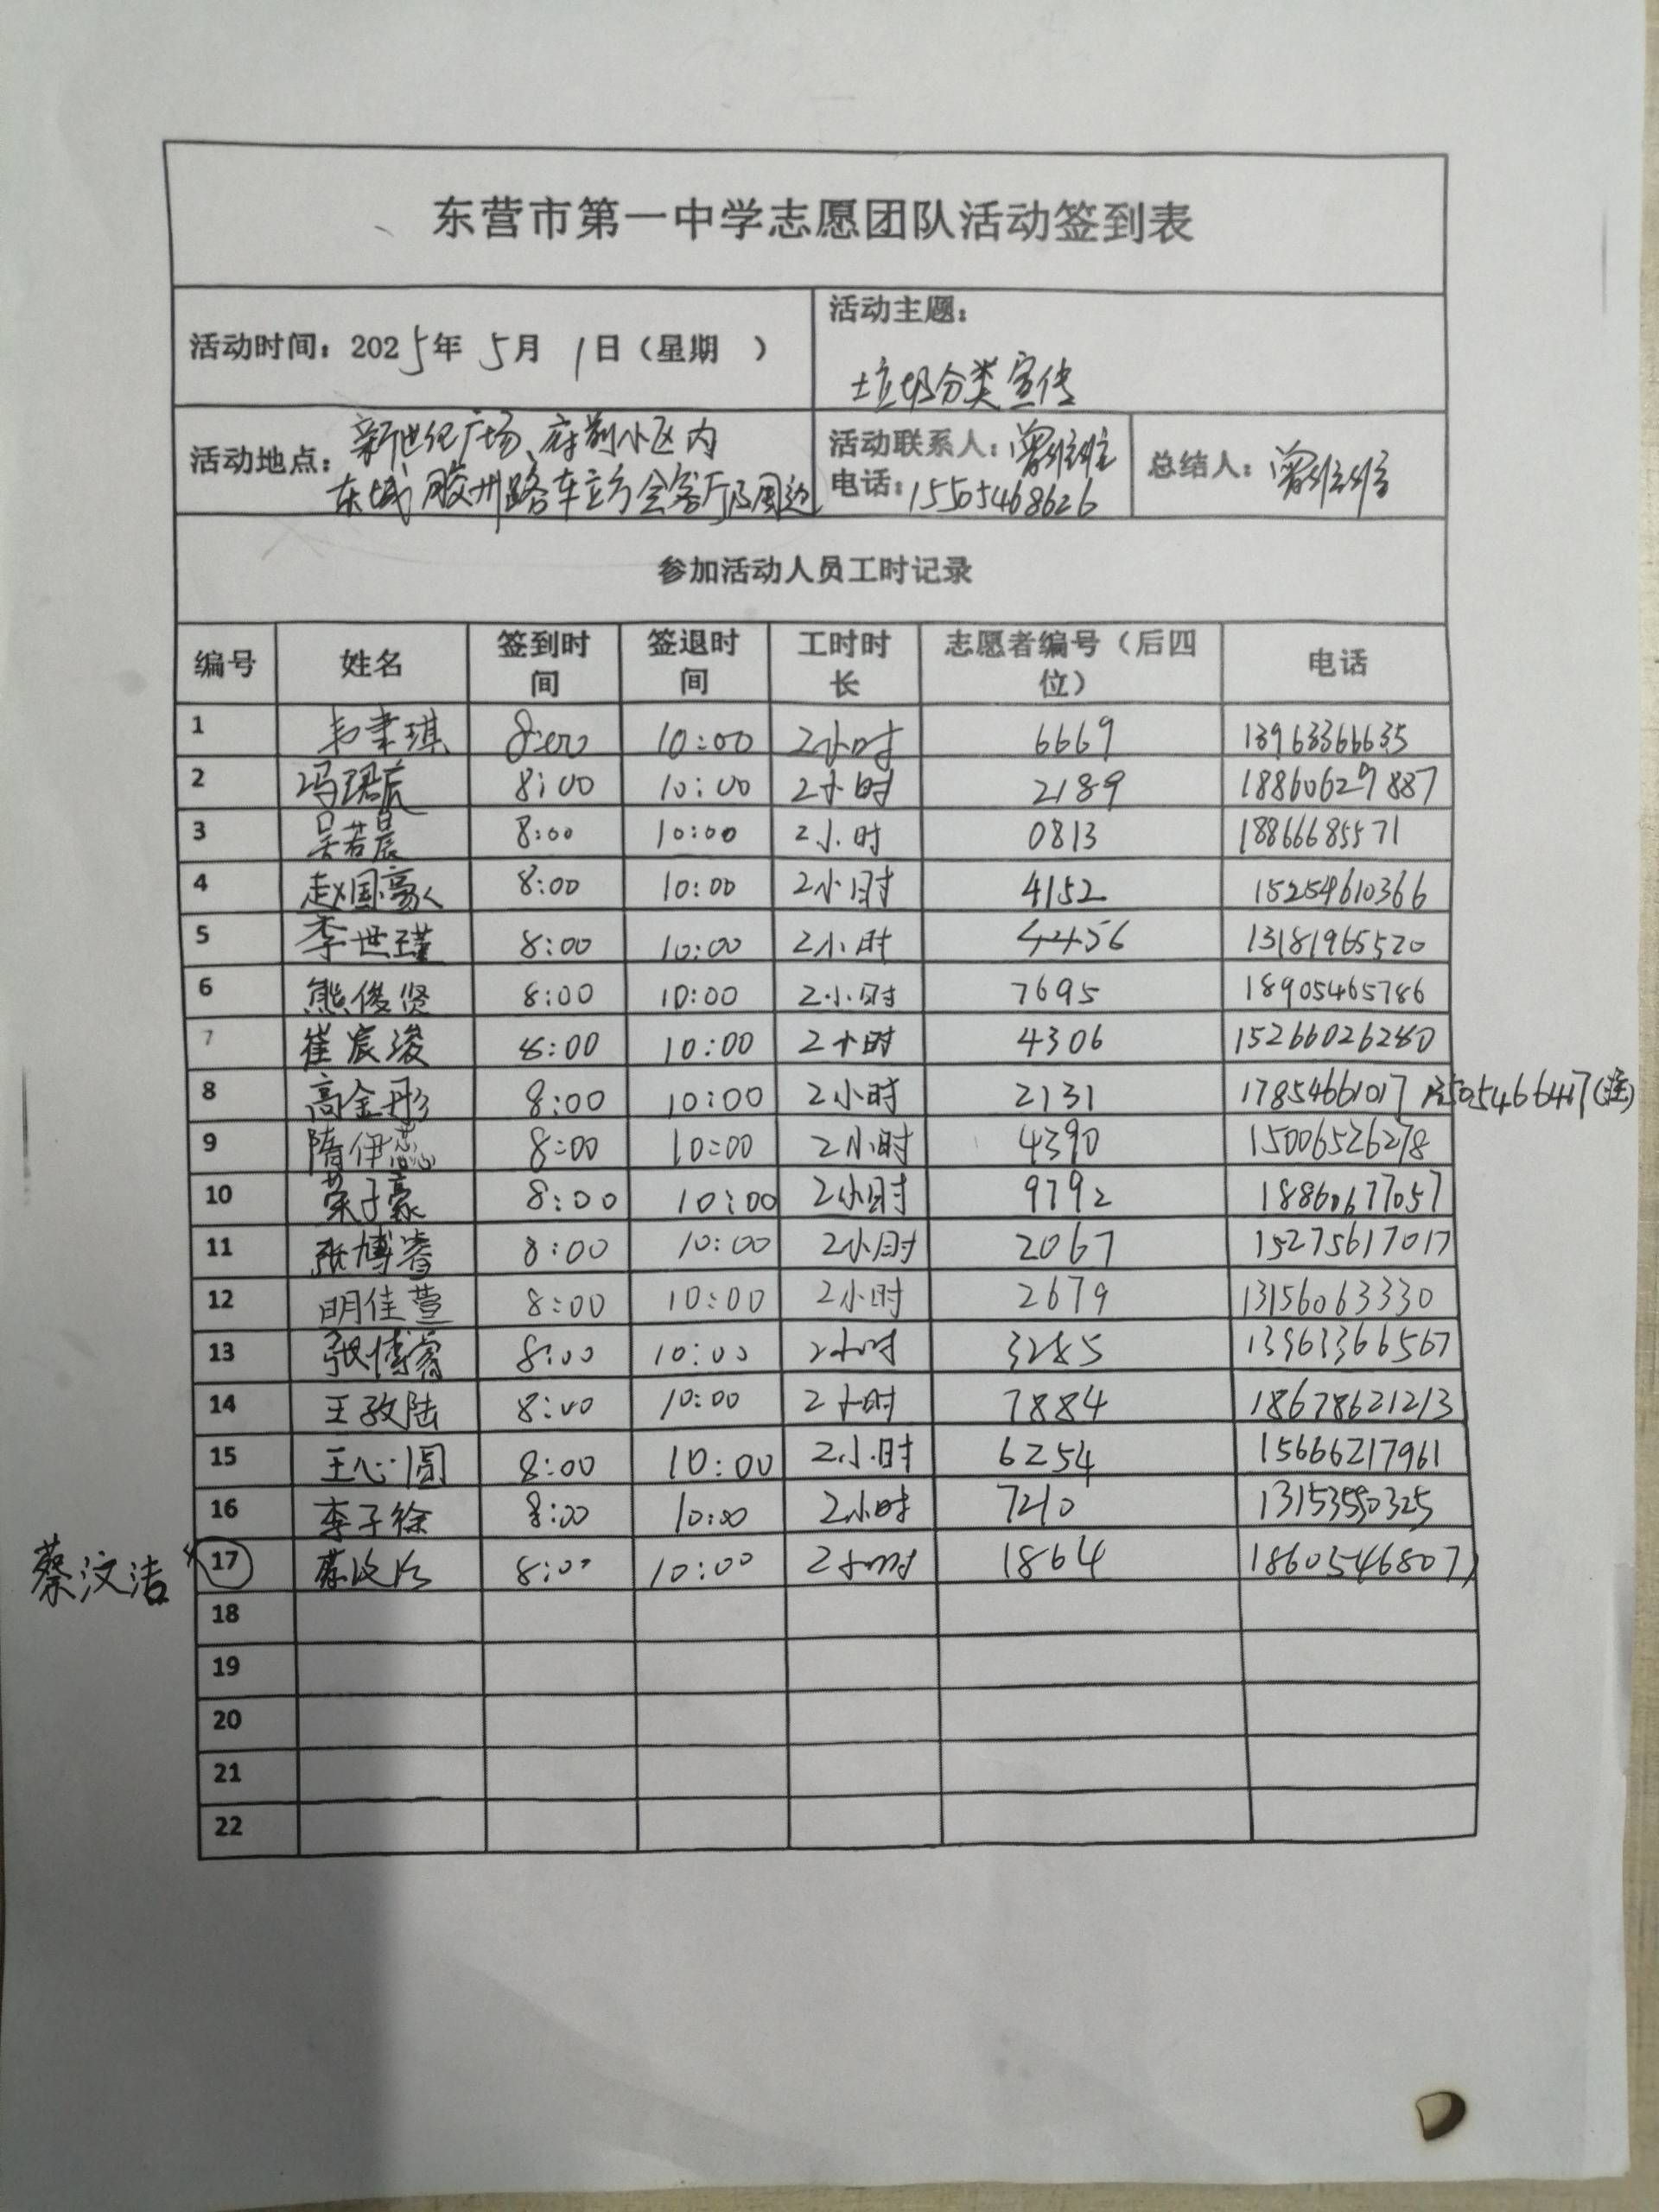 东营市第一中学志愿团队活动签到表
活动时间：2025年 5月 1日（星期 ）
活动主题：
垃圾分类宣传
活动地点：新世纪广场、府前小区内
东城胶州路车立方会客厅及周边
活动联系人：曾维维
电话：15505468626
总结人：曾维维
参加活动人员工时记录
编号 姓名 签到时间 签退时间 工时时长 志愿者编号（后四位） 电话
1 琪 8:00 10:00 2小时 6669 13963366635
2 冯珺宸 8:00 10:00 2小时 2189 18860627887
3 吴若晨 8:00 10:00 2小时 0813 18866685571
4 赵国豪 8:00 10:00 2小时 4152 15254610366
5 李世瑾 8:00 10:00 2小时 4456 13181965520
6 熊俊贤 8:00 10:00 2小时 7695 18905465786
7 崔宸浚 8:00 10:00 2小时 4306 15266026280
8 高金彤 8:00 10:00 2小时 2131 17854661017
9 隋伊蕊 8:00 10:00 2小时 4390 15006526278
10 荣子豪 8:00 10:00 2小时 9792 18860677057
11 张博睿 8:00 10:00 2小时 2067 15275617017
12 明佳萱 8:00 10:00 2小时 2679 13156063330
13 张博睿 8:00 10:00 2小时 3285 13963366567
14 王孜陆 8:00 10:00 2小时 7884 18678621213
15 王心圆 8:00 10:00 2小时 6254 15666217961
16 李子徐 8:00 10:00 2小时 7210
蔡汶洁 17 蔡汶洁 8:00 10:00 2小时 1864 18605468071
18
19
20
21
22